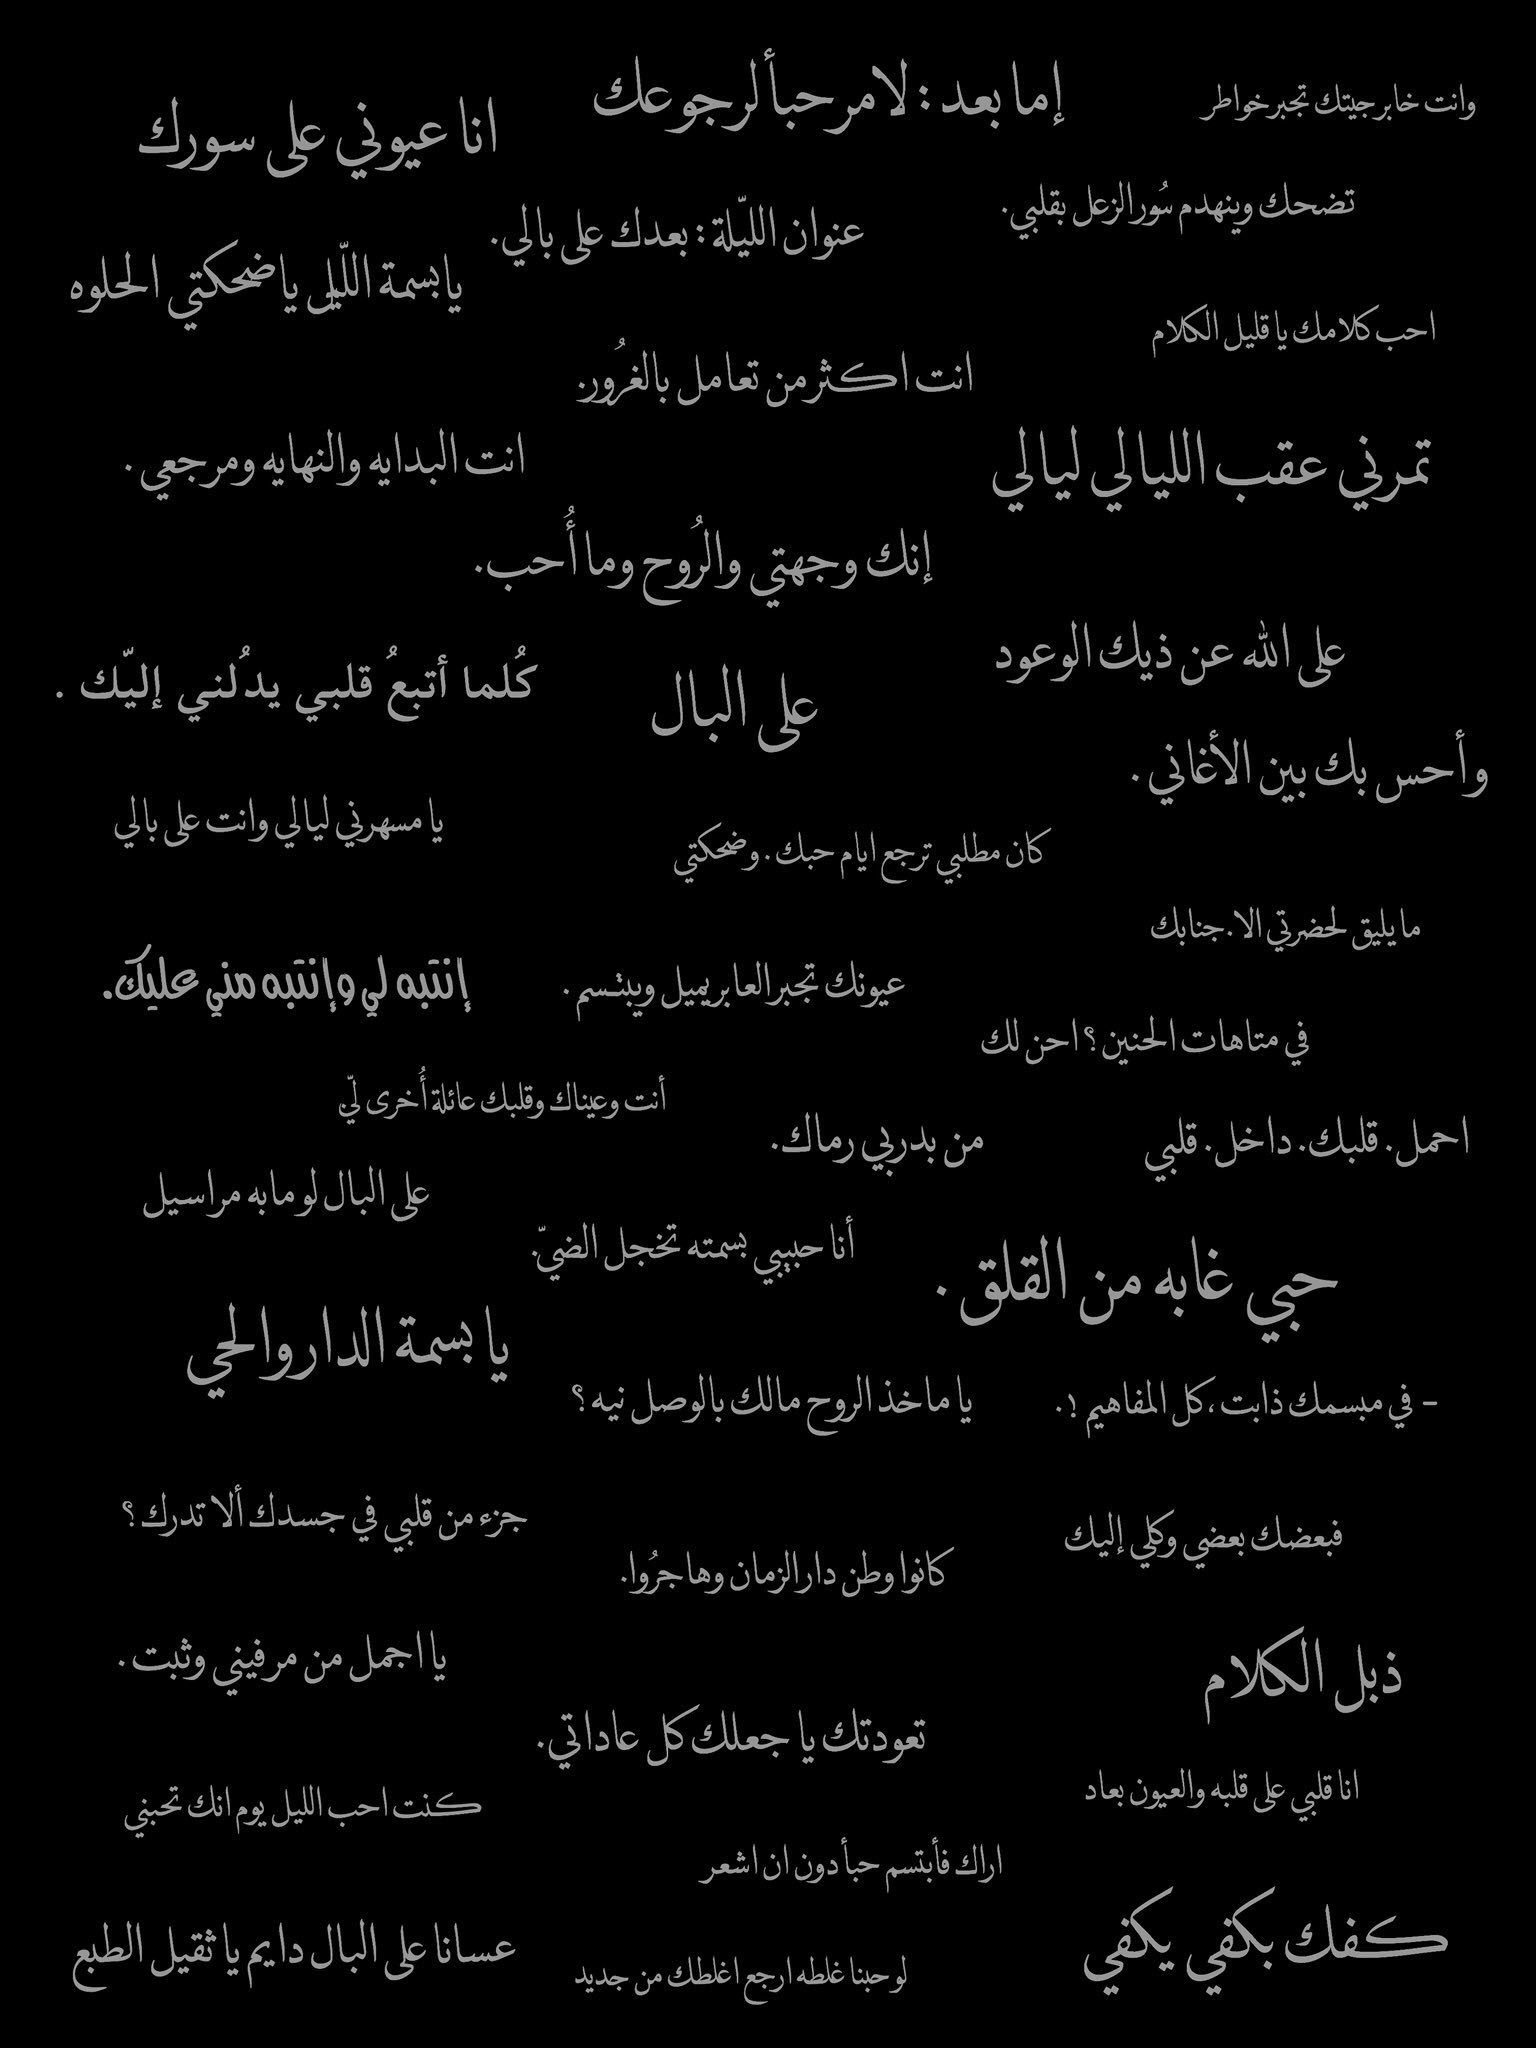 وانت خابر جيتك تجبر خواطر
إما بعد : لا مرحباً لرجوعك
انا عيوني على سورك
تضحك وينهدم سُور الزعل بقلبي.
عنوان الليّلة : بعدك على بالي.
يا بسمة اللّيل يا ضحكتي الحلوه
احب كلامك يا قليل الكلام
انت اكثر من تعامل بالغرُور.
تمرني عقب الليالي ليالي
انت البدايه والنهايه ومرجعي .
إنك وجهتي والرُوح وما أُحب.
على الله عن ذيك الوعود
كُلما أتبعُ قلبي يدُلني إليّك .
على البال
وأحس بك بين الأغاني .
يا مسهرني ليالي وانت على بالي
كان مطلبي ترجع ايام حبك . وضحكتي
ما يليق لحضرتي الا. جنابك
إنتبه لي وإنتبه مني عليك.
عيونك تجبر العابر يميل ويبتسم .
في متاهات الحنين ؟ احن لك
أنت وعيناك وقلبك عائلة أُخرى ليّ.
من بدربي رماك.
احمل. قلبك. داخل. قلبي
على البال لو مابه مراسيل
أنا حبيبي بسمته تخجل الضيّ.
حبي غابه من القلق .
يا بسمة الدار والحي
يا ماخذ الروح مالك بالوصل نيه ؟
- في مبسمك ذابت ،كل المفاهيم !.
جزء من قلبي في جسدك ألا تدرك ؟
فبعضك بعضي وكلي إليك
كانوا وطن دار الزمان وهاجرُوا.
يا اجمل من مر فيني وثبت .
ذبل الكلام
تعودتك يا جعلك كل عاداتي.
انا قلبي على قلبه والعيون بعاد
كنت احب الليل يوم انك تحبني
اراك فأبتسم حبأ دون ان اشعر
كفك بكفي يكفي
عسانا على البال دايم يا ثقيل الطبع
لو حبنا غلطه ارجع اغلطك من جديد